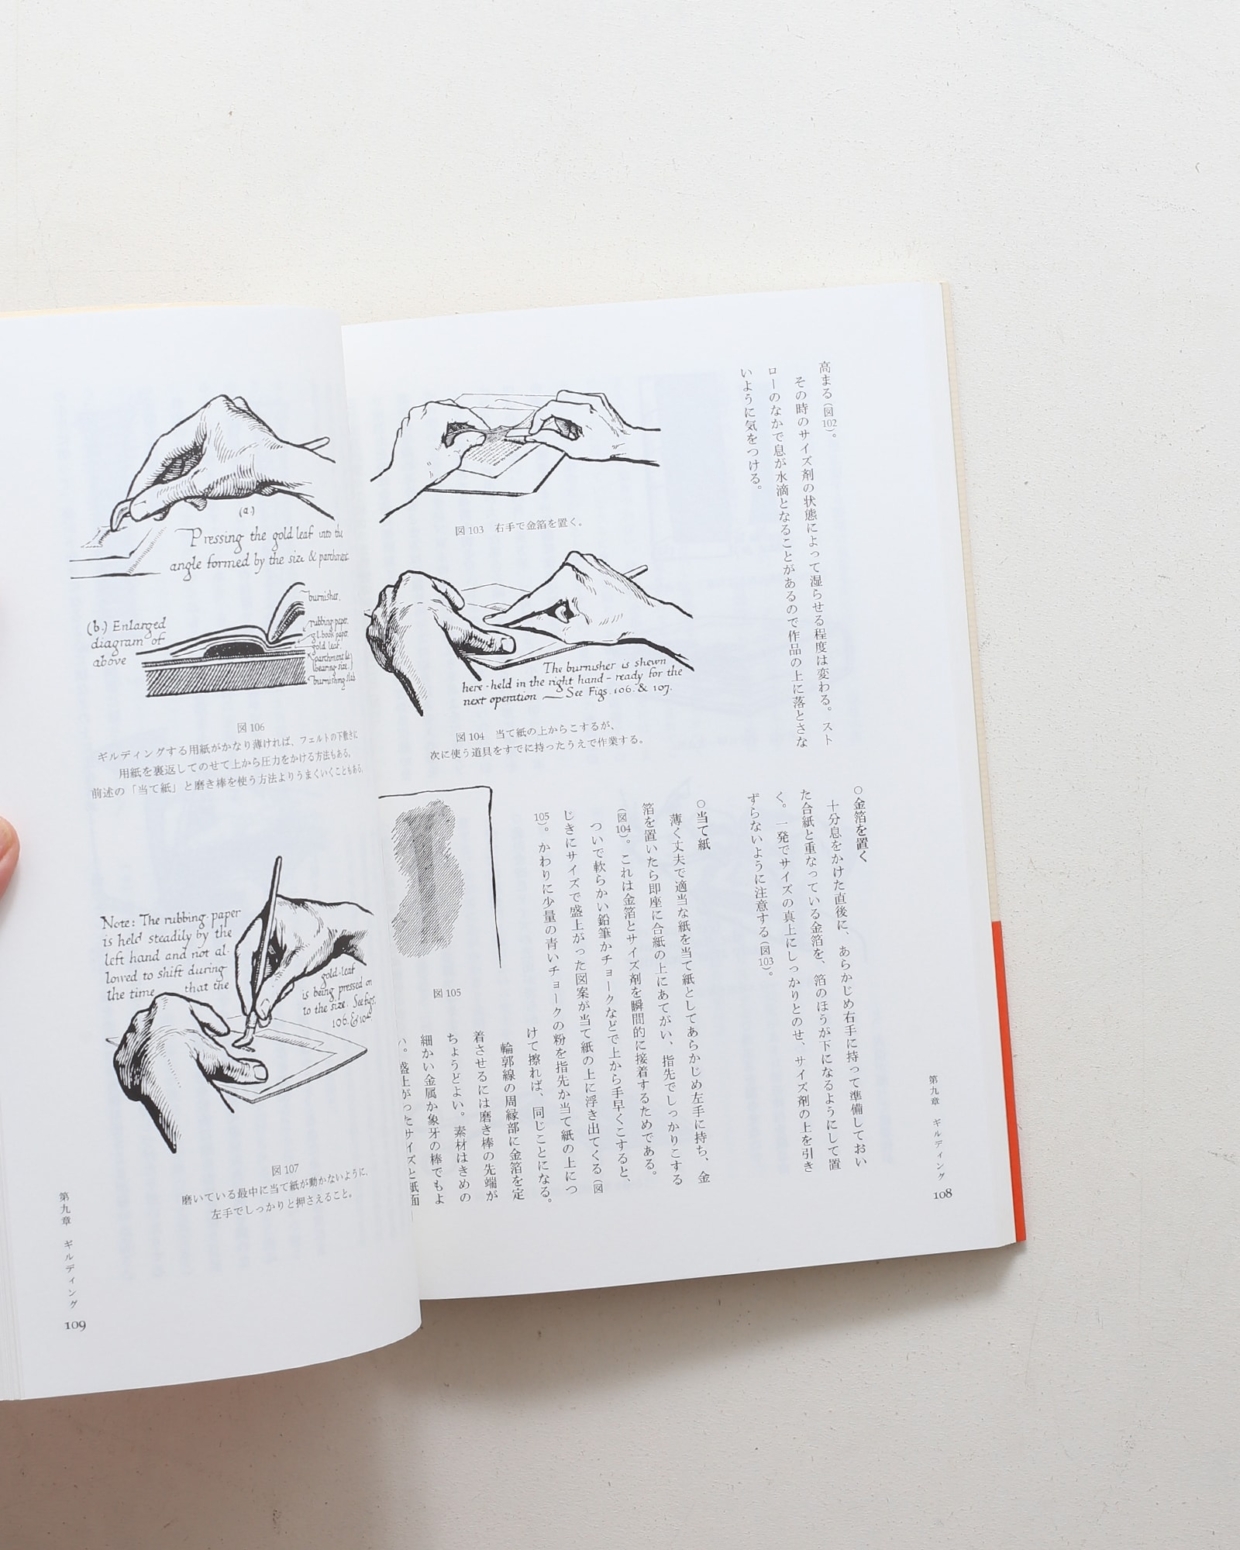 高まる(図102)。
その時のサイズ剤の状態によって湿らせる程度は変わる。スト
ローのなかで息が水滴となることがあるので作品の上に落とさな
いように気をつける。
○金箔を置く
十分息をかけた直後に、あらかじめ右手に持って準備しておい
た合紙と重なっている金箔を、箔のほうが下になるようにして置
く。一発でサイズの真上にしっかりとのせ、サイズ剤の上を引き
ずらないように注意する(図103)。
○当て紙
薄く丈夫で適当な紙を当て紙としてあらかじめ左手に持ち、金
箔を置いたら即座に合紙の上にあてがい、指先でしっかりこする
(図104)。これは金箔とサイズ剤を瞬間的に接着するためである。
ついで軟らかい鉛筆かチョークなどで上から手早くこすると、
じきにサイズで盛上がった図案が当て紙の上に浮き出てくる(図
105)。かわりに少量の青いチョークの粉を指先か当て紙の上につ
けて擦れば、同じことになる。
輪郭線の周縁部に金箔を定
着させるには磨き棒の先端が
ちょうどよい。素材はきめの
細かい金属か象牙の棒でもよ
い。盛上がったサイズと紙面
図103 右手で金箔を置く。
The burnisher is shewn
here-held in the right hand-ready for the
next operation — See Figs. 106. & 107.
図104 当て紙の上からこするが、
次に使う道具をすでに持ったうえで作業する。
図105
第九章 ギルディング
108
(a.)
Pressing the gold leaf into the
angle formed by the size & parchment
(b.) Enlarged
diagram of
above
burnisher.
rubbing paper
gold leaf
burnishing slab
図106
ギルディングする用紙がかなり薄ければ、フェルトの下敷きに
用紙を裏返してのせて上から圧力をかける方法もある。
前述の「当て紙」と磨き棒を使う方法よりうまくいくこともある。
Note: The rubbing paper
is held steadily by the
left hand and not al-
lowed to shift during
the time that the
gold-leaf
is being pressed on
to the size. See figs.
106. & 104
図107
磨いている最中に当て紙が動かないように、
左手でしっかりと押さえること。
第九章 ギルディング
109